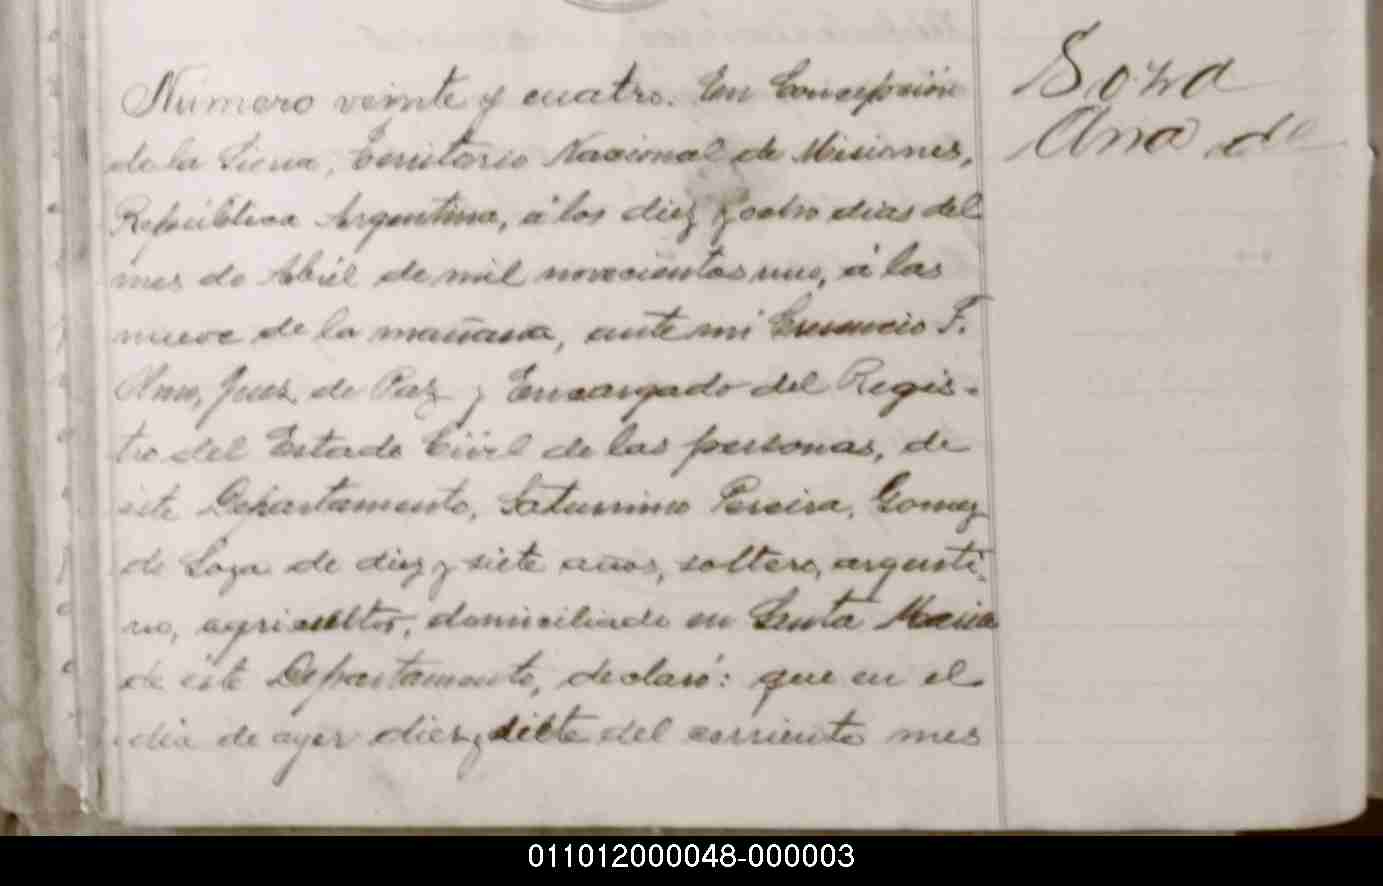 Número veinte y cuatro. En Concepción
de la Sierra, Territorio Nacional de Misiones,
República Argentina, á los diez y ocho dias del
mes de Abril de mil novecientos uno, á las
nueve de la mañana, ante mi F.
Juez de Paz y Encargado del Regis-
tro del Estado Civil de las personas, de
este Departamento, Saturnino Pereira, Gomez
de Soza de diez y siete años, soltero, argenti-
no, agricultor, domiciliado en Santa Maria
de éste Departamento, declaró: que en el
dia de ayer diez y siete del corriente mes
Soza
Ana de
011012000048-000003